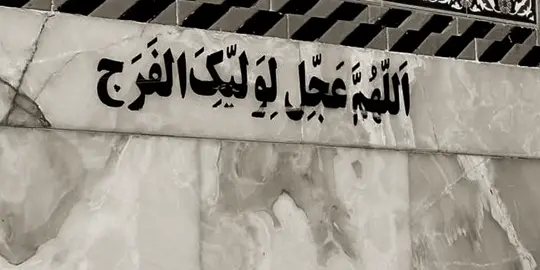 اَللّهُمَّ عَجِّل لِوَلیِّکَ الفَرَج